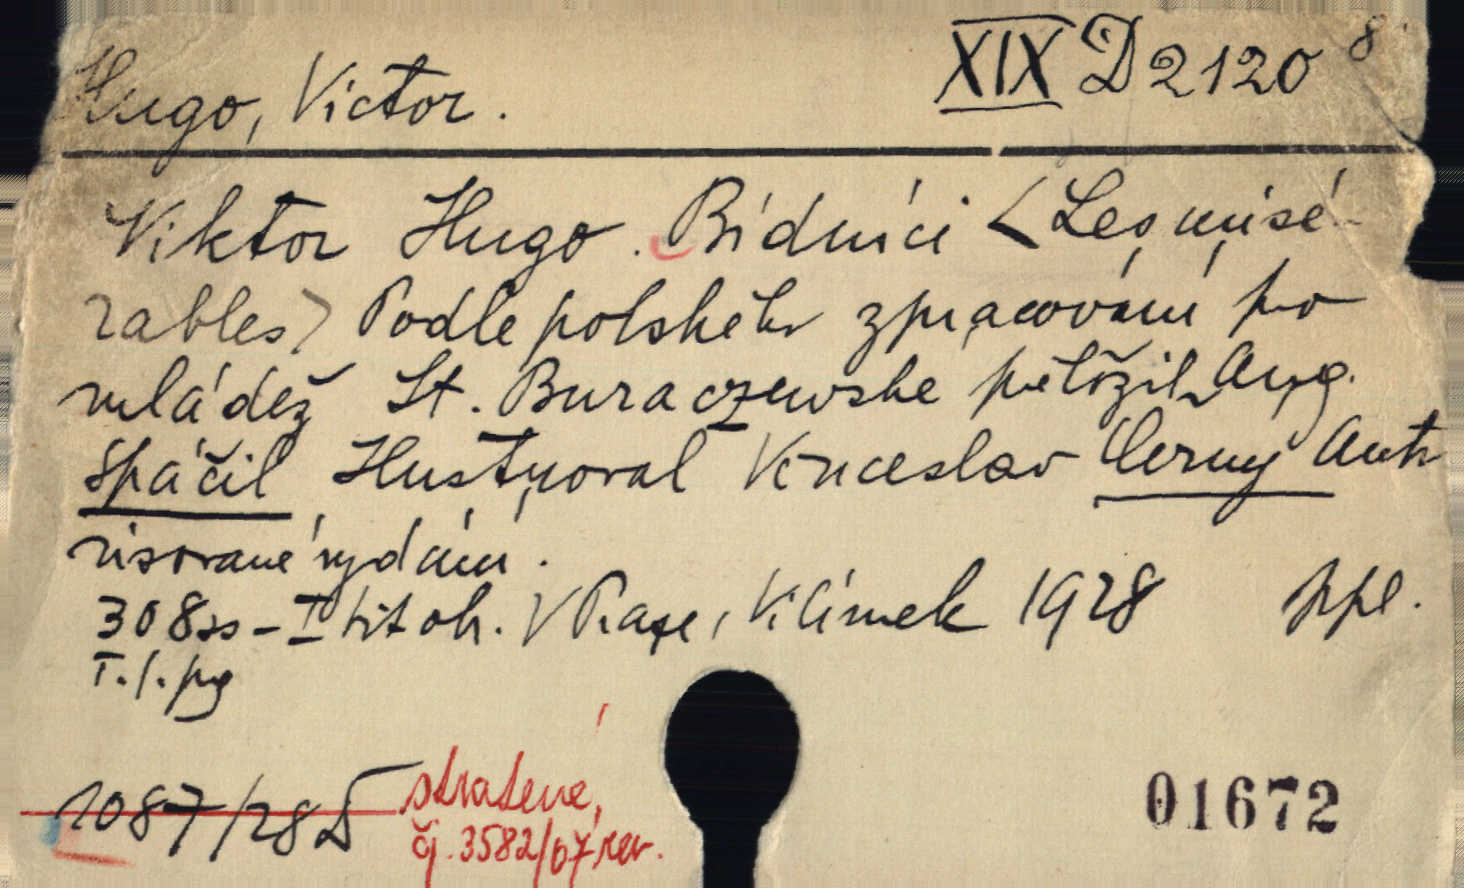 Hugo, Victor.
XIX D 2120 8°
Viktor Hugo. Bídníci <Les misé-
rables> Podle polského zpracování pro
mládež St. Buraczewske přeložil Aug.
Špáčil Ilustroval Věnceslav Černý Auto
risované vydání.
308 ss - I tit ob. V Praze, Vilímek 1928 ppl.
I. f. pg
1087/28 D
ztratené,
čj. 3582/67 rev.
01672